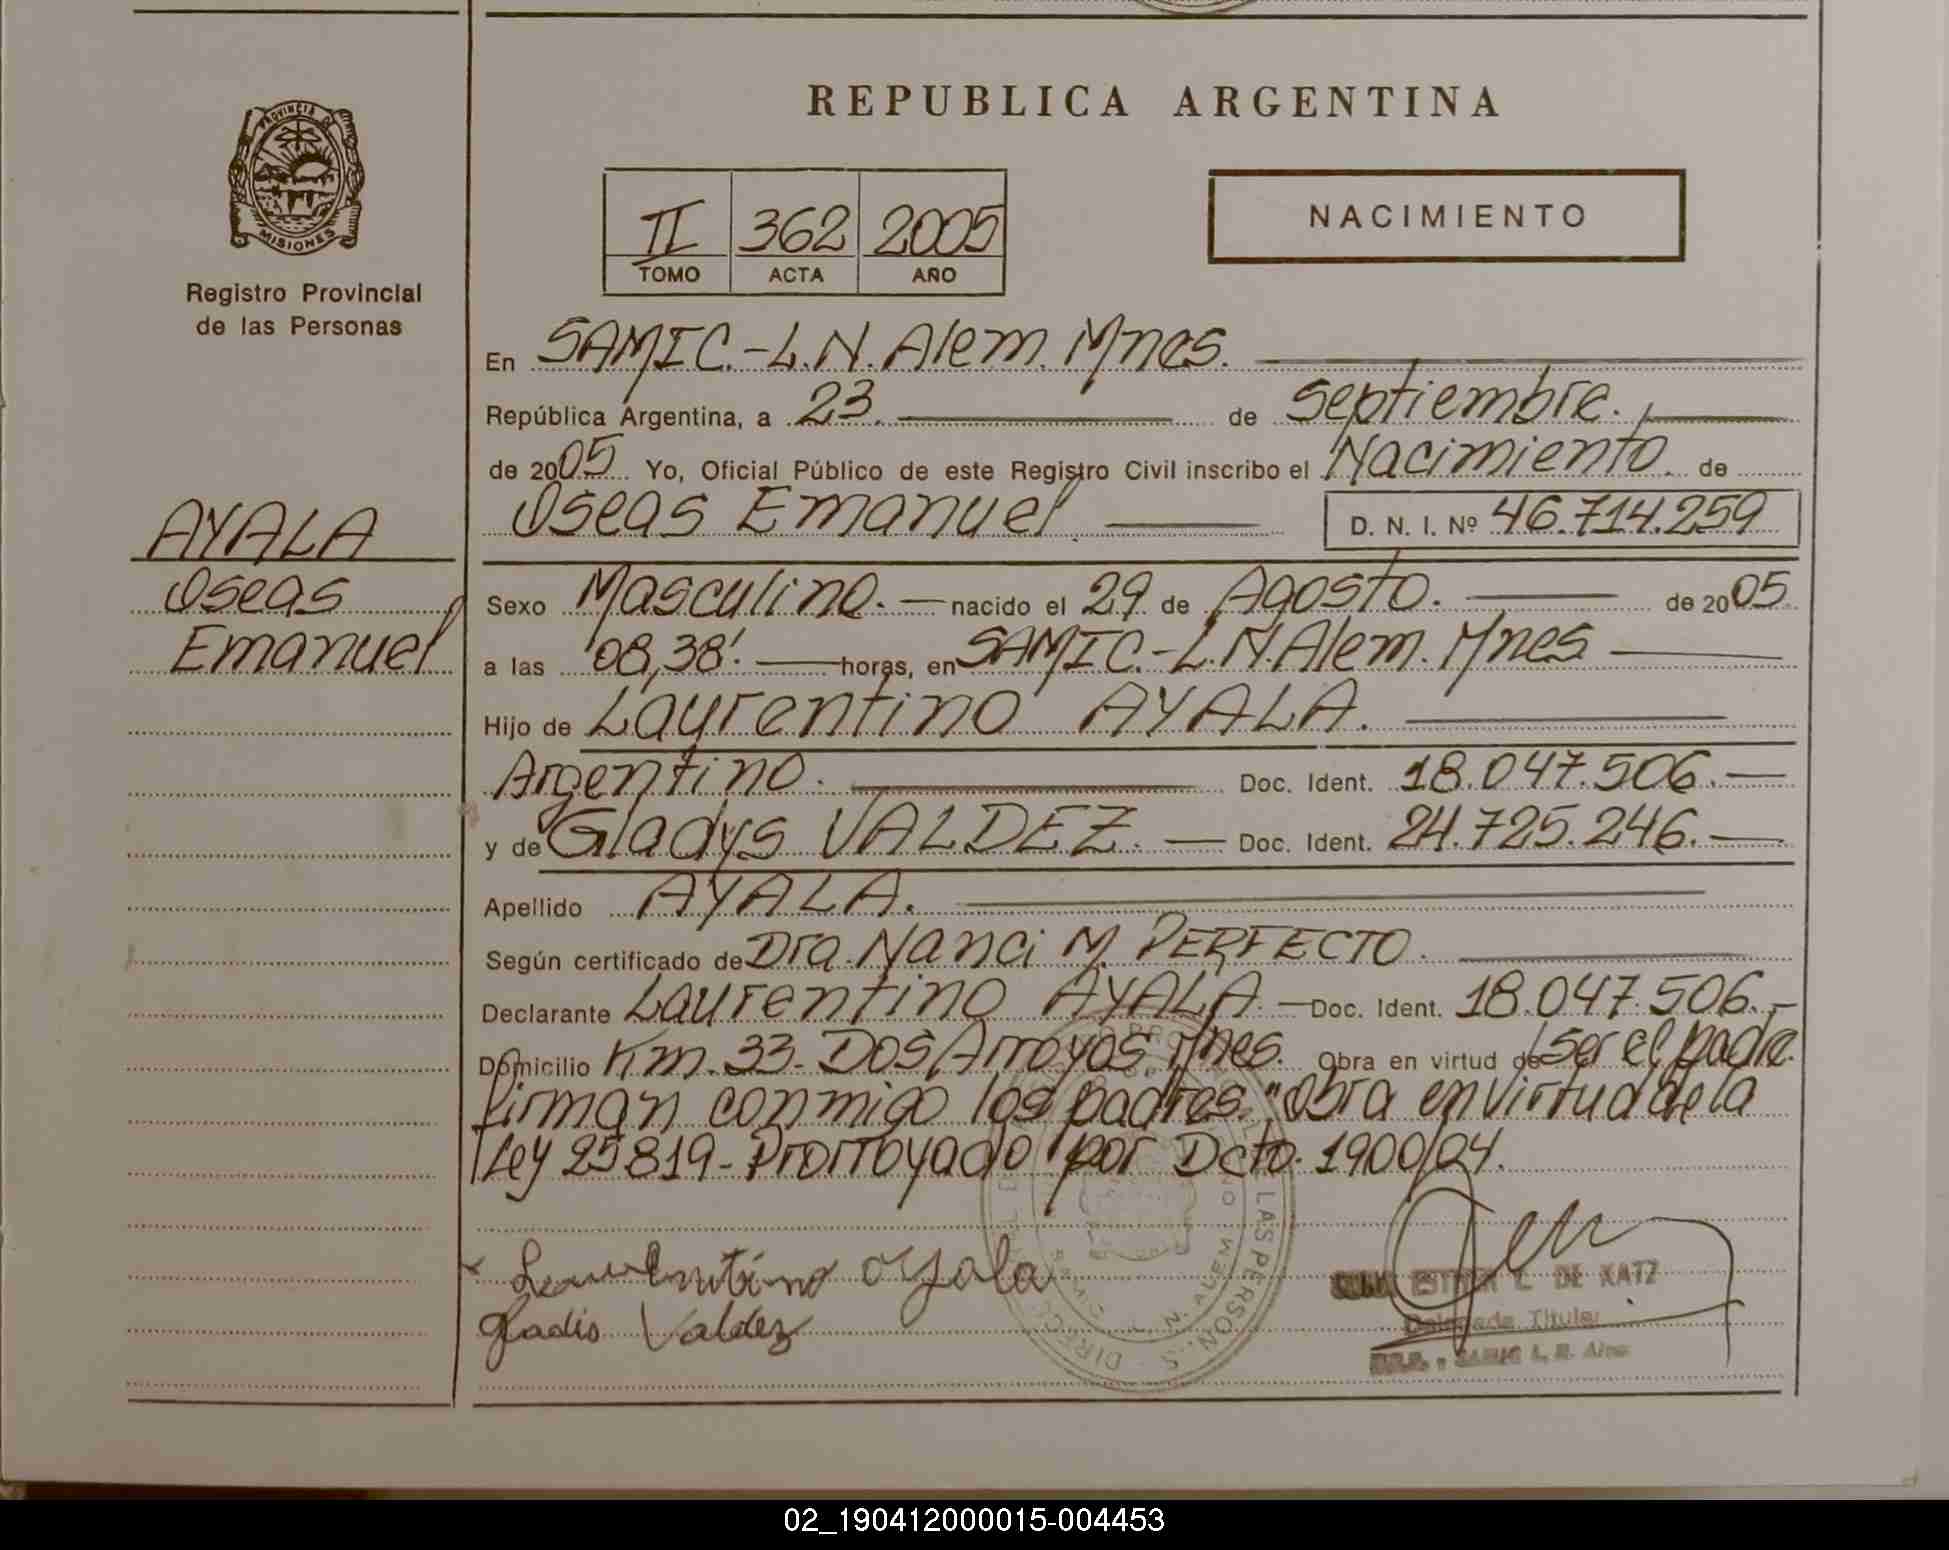 REPUBLICA ARGENTINA
PROVINCIA DE
MISIONES
Registro Provincial
de las Personas
II 362 2005
TOMO ACTA AÑO
NACIMIENTO
En SAMIC.-L.N.Alem. Mnes.
República Argentina, a 23. de Septiembre.
de 2005 Yo, Oficial Público de este Registro Civil inscribo el Nacimiento. de
Oseas Emanuel D. N. I. Nº 46.714.259
AYALA
Oseas
Emanuel
Sexo Masculino. nacido el 29 de Agosto. de 2005
a las 08,38'. horas, en SAMIC.-L.N.Alem. Mnes
Hijo de Laurentino AYALA.
Argentino. Doc. Ident. 18.047.506.
y de Gladys VALDEZ. Doc. Ident. 24.725.246.
Apellido AYALA.
Según certificado de Dra. Nanci M. PERFECTO.
Declarante Laurentino AYALA. Doc. Ident. 18.047.506.-
Domicilio Km. 33- Dos Arroyos, Mnes. Obra en virtud de ser el padre.
firman conmigo los padres. "Obra en virtud de la
Ley 25819- Prorroyado por Dcto. 1900/04.
Laurentino Ayala
Gladis Valdez
ESTHER L. DE KATZ
Delegada Titular
SAMIC L. N. Alem
02_190412000015-004453